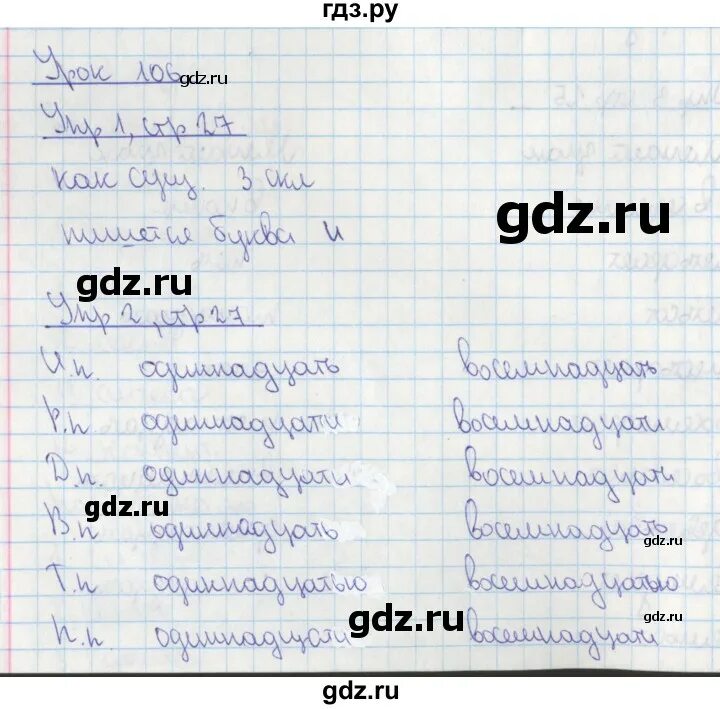 гдз.ру
Урок 106
gdz.ru
Упр 1, стр 27
как сущ. 3 скл
gdz.ru
пишется буква и
gdz.ru
Упр 2, стр 27
И.п. одиннадцать восемнадцать
gdz.ru
Р.п. одиннадцати восемнадцати
Д.п. одиннадцати восемнадцати
gdz.ru
В.п одиннадцать восемнадцать
gdz.ru
Т.п одиннадцатью восемнадцатью
gdz.ru
П.п. одиннадцати восемнадцати
gdz.ru
gdz.ru